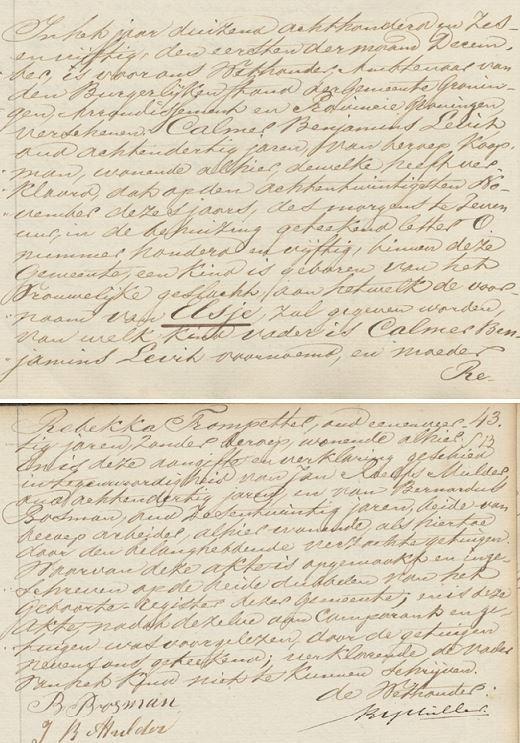 In het jaar duizend achthonderd en zes-
en vijftig, den eersten der maand Decem-
ber, is voor ons Wethouder, Ambtenaar van
den Burgerlijken stand der Gemeente Gronin-
gen, Arrondissement en Provincie Groningen
verschenen: Calmer Benjamins Levith
oud achtendertig jaren, van beroep koop-
man, wonende alhier, dewelke heeft ver-
klaard, dat op den achtentwintigsten No-
vember dezes jaars, des morgens te zeven
uur, in de behuizing geteekend letter O
nummer honderd en vijftig, binnen deze
Gemeente, een kind is geboren van het
Vrouwelijke geslacht, aan hetwelk de voor-
naam van Elsje, zal gegeven worden,
van welk kind vader is Calmer Ben-
jamins Levith voornoemd, en moeder
Re-
Rebekka Trompetter, oud eenenveer- 43.
tig jaren, zonder beroep, wonende alhier.
en is deze aangifte en verklaring geschied
in tegenwoordigheid van Jan Mulder
oud achtendertig jaren, en van Bernardus
Bosman, oud zesentwintig jaren, beide van
beroep arbeider, alhier wonende als hiertoe
door den belanghebbende verzochte getuigen.
Waarvan deze akte is opgemaakt en inge-
schreven op de beide dubbelen van het
geboorte-register dezer Gemeente; en is deze
akte, nadat dezelve aan Comparant en ge-
tuigen was voorgelezen, door de getuigen
nevens ons geteekend; verklarende de vader
van het kind niet te kunnen schrijven.
B Bosman de Wethouder.
J R Mulder